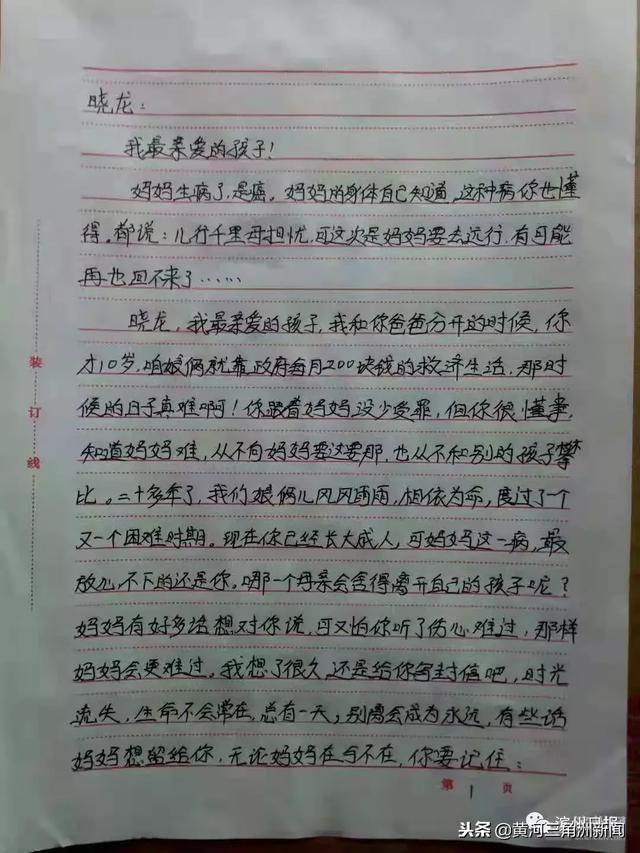 晓龙：
我最亲爱的孩子！
妈妈生病了，是癌。妈妈的身体自己知道，这种病你也懂
得。都说：儿行千里母担忧，可这次是妈妈要去远行，有可能
再也回不来了……
晓龙，我最亲爱的孩子，我和你爸爸分开的时候，你
才10岁，咱娘俩就靠政府每月200块钱的救济生活，那时
候的日子真难啊！你跟着妈妈没少受罪，但你很懂事，
知道妈妈难，从不向妈妈要这要那，也从不和别的孩子攀
比。二十多年了，我们娘俩儿风风雨雨，相依为命，度过了一个
又一个困难时期。现在你已经长大成人，可妈妈这一病，最
放心不下的还是你。哪一个母亲会舍得离开自己的孩子呢？
妈妈有好多话想对你说，可又怕你听了伤心难过，那样
妈妈会更难过。我想了很久，还是给你写封信吧，时光
流失，生命不会常在，总有一天，别离会成为永远，有些话
妈妈想留给你，无论妈妈在与不在，你要记住：
装订线
第 1 页
滨州日报
头条 @黄河三角洲新闻